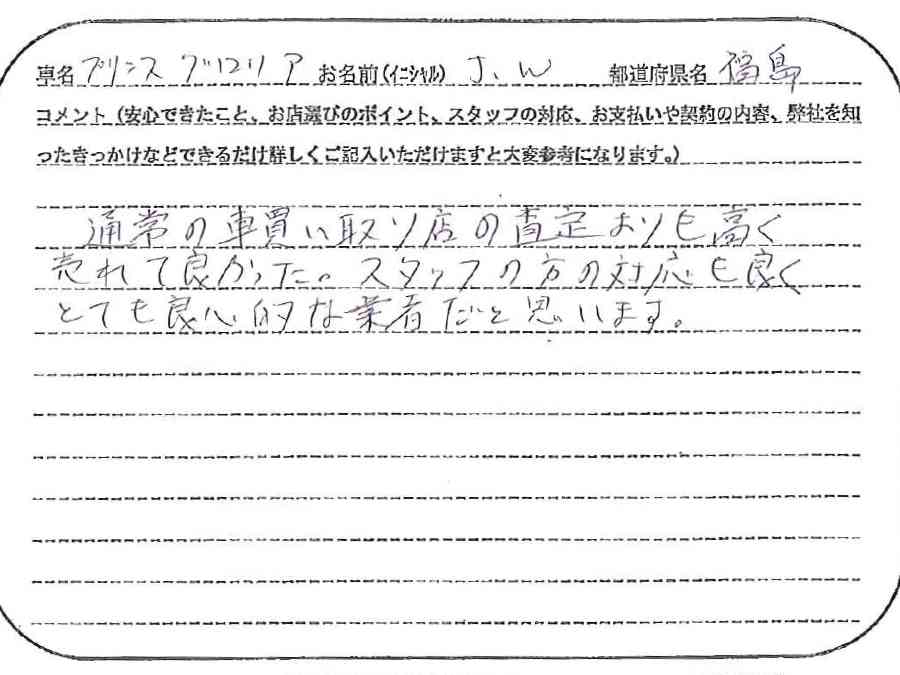 車名 プリンス グロリア お名前(ｲﾆｼｬﾙ) J.W 都道府県名 福島
コメント(安心できたこと、お店選びのポイント、スタッフの対応、お支払いや契約の内容、弊社を知
ったきっかけなどできるだけ詳しくご記入いただけますと大変参考になります。)
通常の車買い取り店の査定よりも高く
売れて良かった。スタッフの方の対応も良く
とても良心的な業者だと思います。